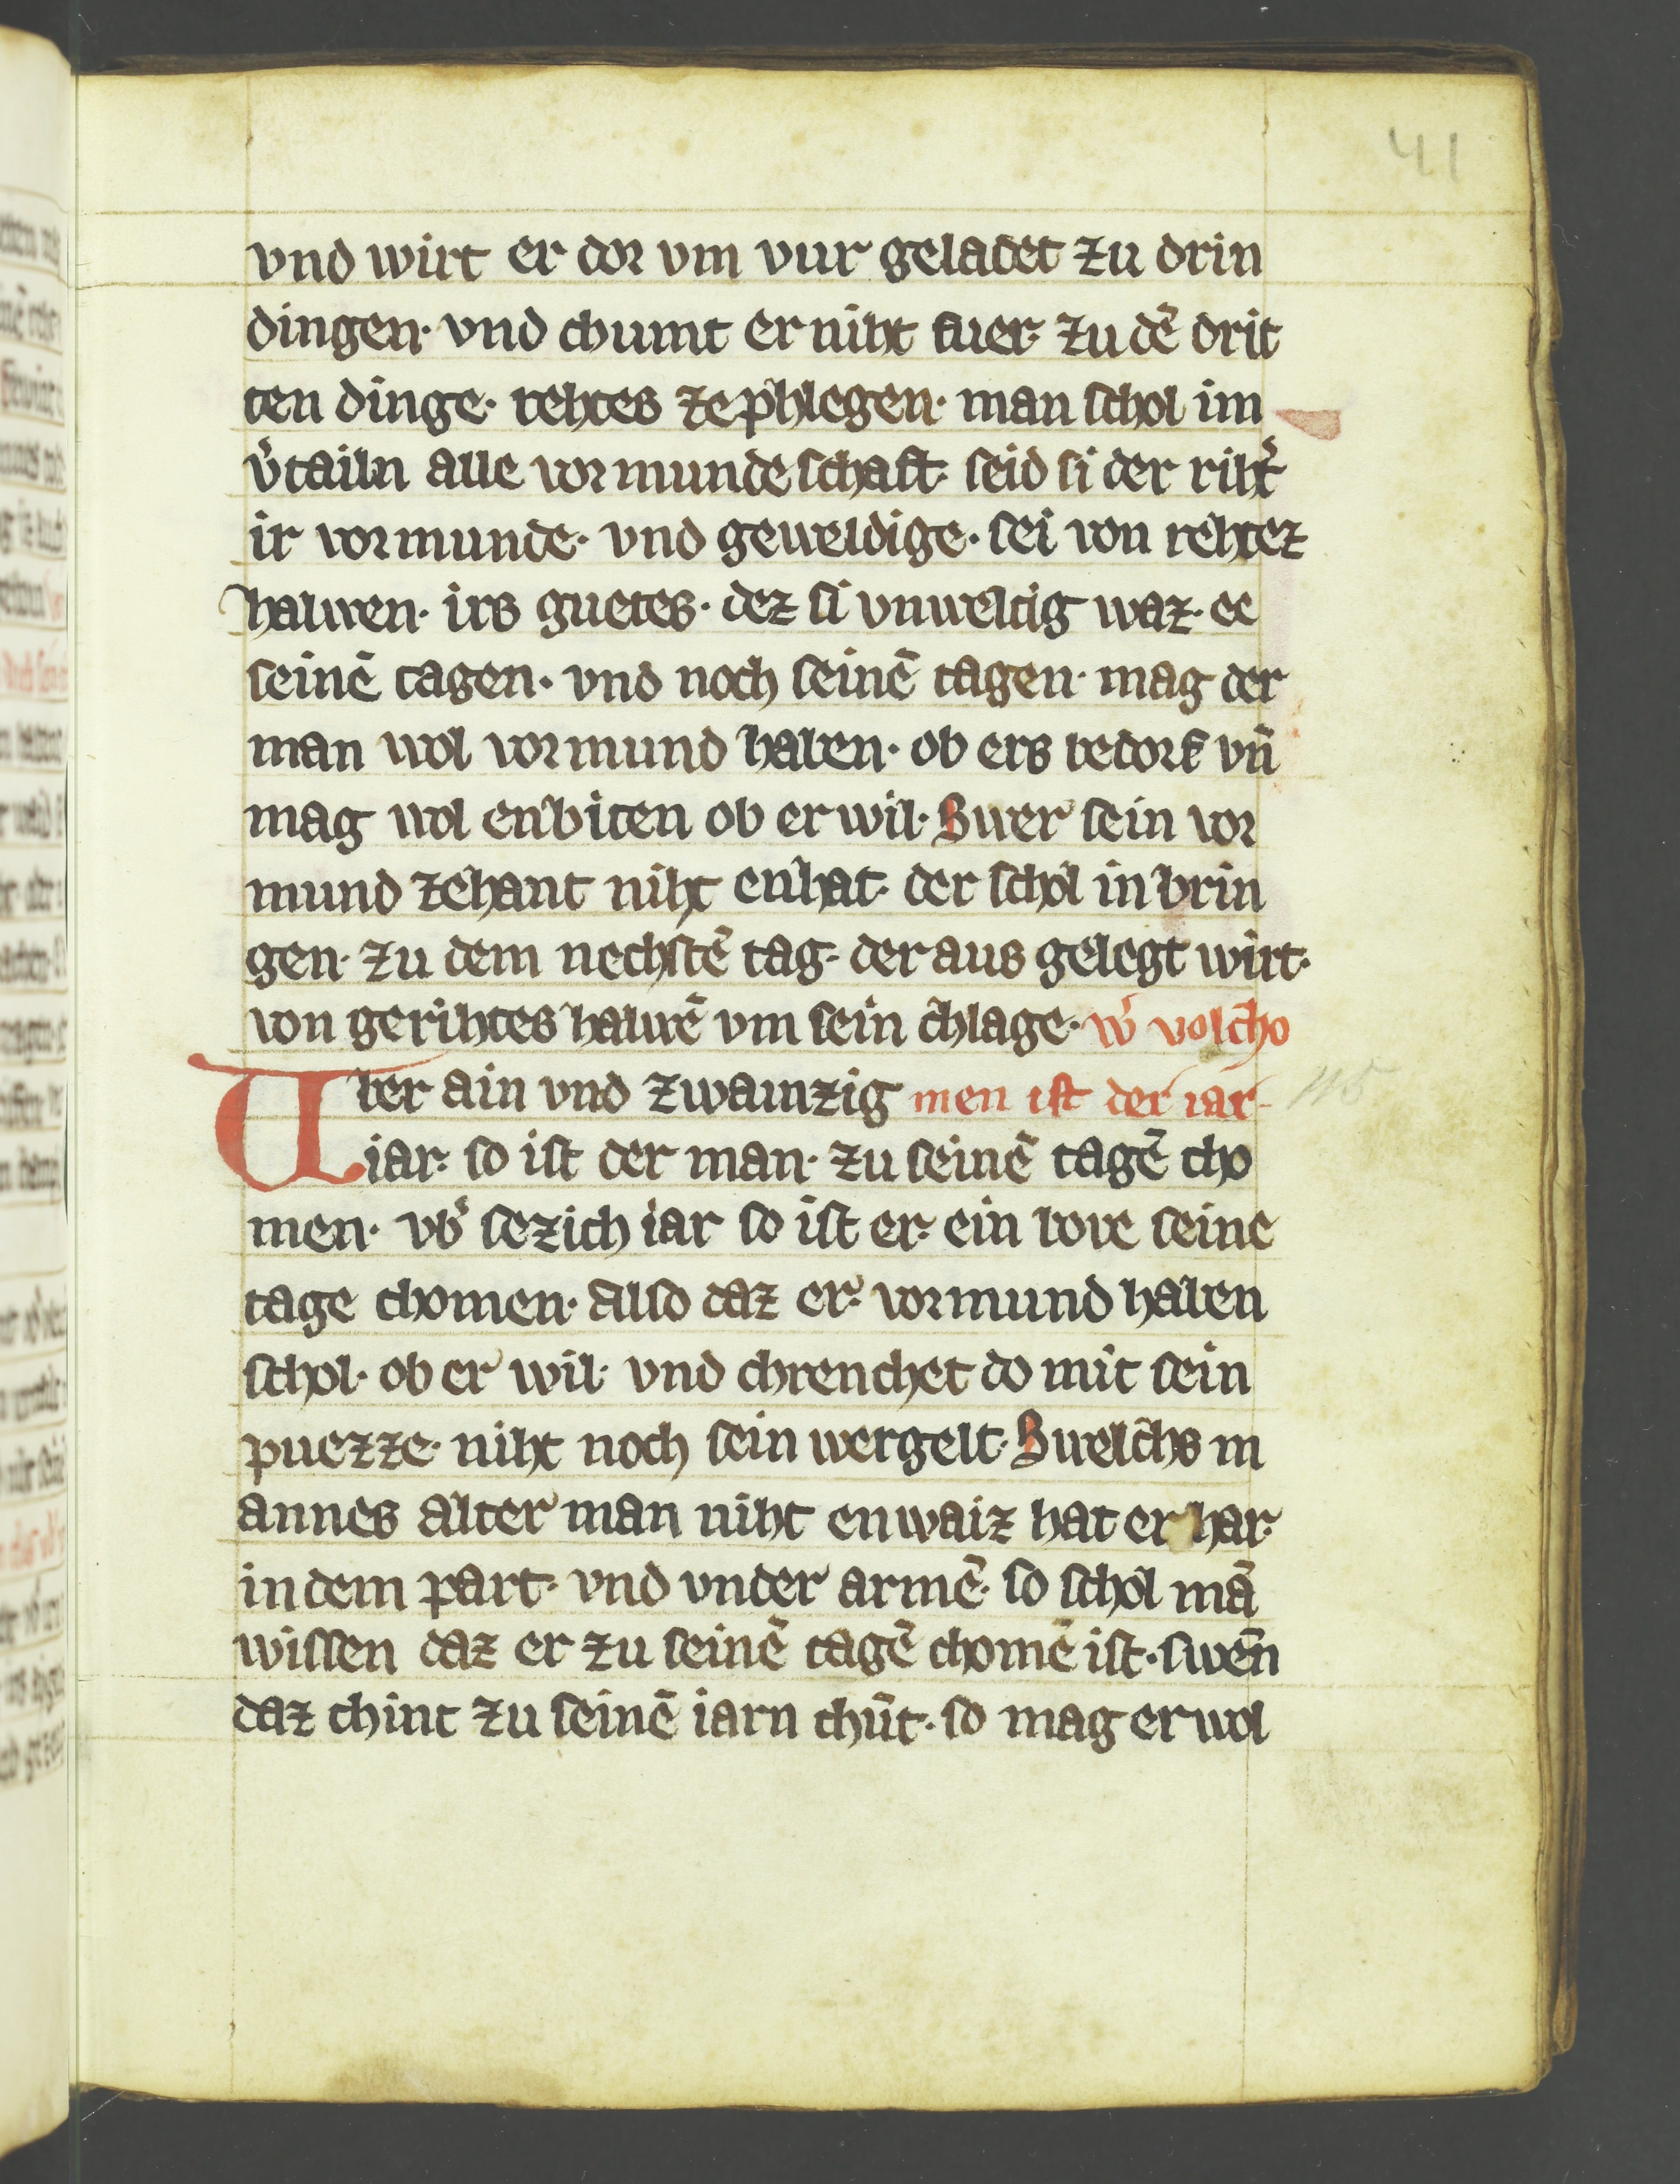 41
vnd wirt er dor vm vur geladet zu drin
dingen· vnd chumt er niht fuer· zu dē drit
ten dinge· rehtes ze phlegen· man schol im
v̓tailn alle vormundeschaft· seid si der riht̓
ir vormunde· vnd geweldige· sei von rehtez
halwen· irs guetes· dez si vnweltig waz· ee
seinē tagen· vnd noch seinē tagen· mag der
man wol vormund haben· ob ers bedorf vn̄
mag wol enbiten ob er wil· Swer sein vor
mund zehant niht enhat· der schol in brin
gen· zu dem nechstē tag· der aus gelegt wirt·
von gerihtes halwē vm sein chlage· w̓ volcho
Uber ain vnd zwainzig men ist der iar
iar· so ist der man· zu seinē tagē cho
men· vb̓ sezich iar so ist er· ein bove seine
tage chomen· also daz er· vormund haben
schol· ob er wil· vnd chrenchet do mit sein
puezze· niht noch sein wergelt· Swelchs m
annes alter man niht enwaiz hat er har·
in dem part· vnd vnder armē· so schol mā
wissen daz er zu seinē tagē chomē ist· swen̄
daz chint zu seinē iarn chūt· so mag er wol